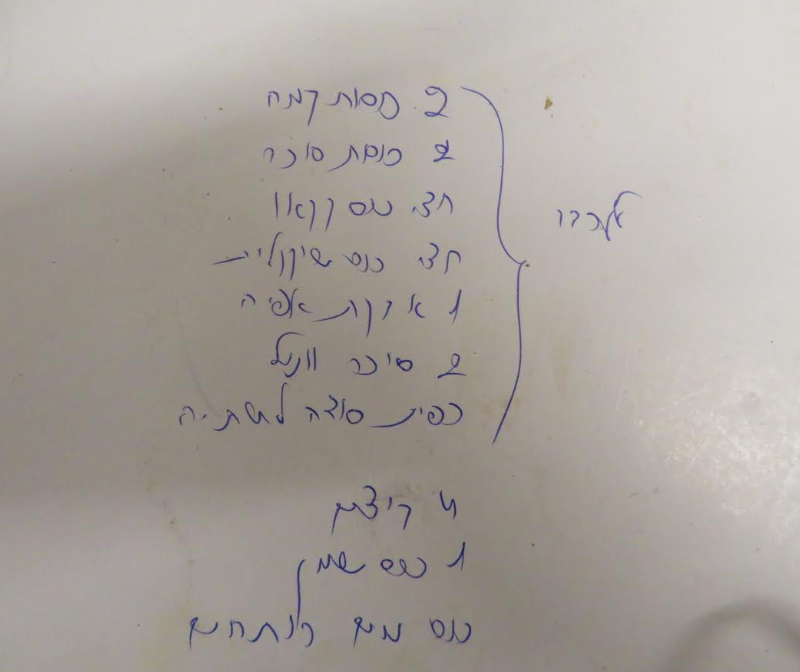 2 כוסות קמח
2 כוסות סוכר
חצי כוס קקאו
חצי כוס שוקולית
1 אבקת אפיה
2 סוכר וניל
כפית סודה לשתיה
לערבב
4 ביצים
1 כוס שמן
כוס מים רותחים